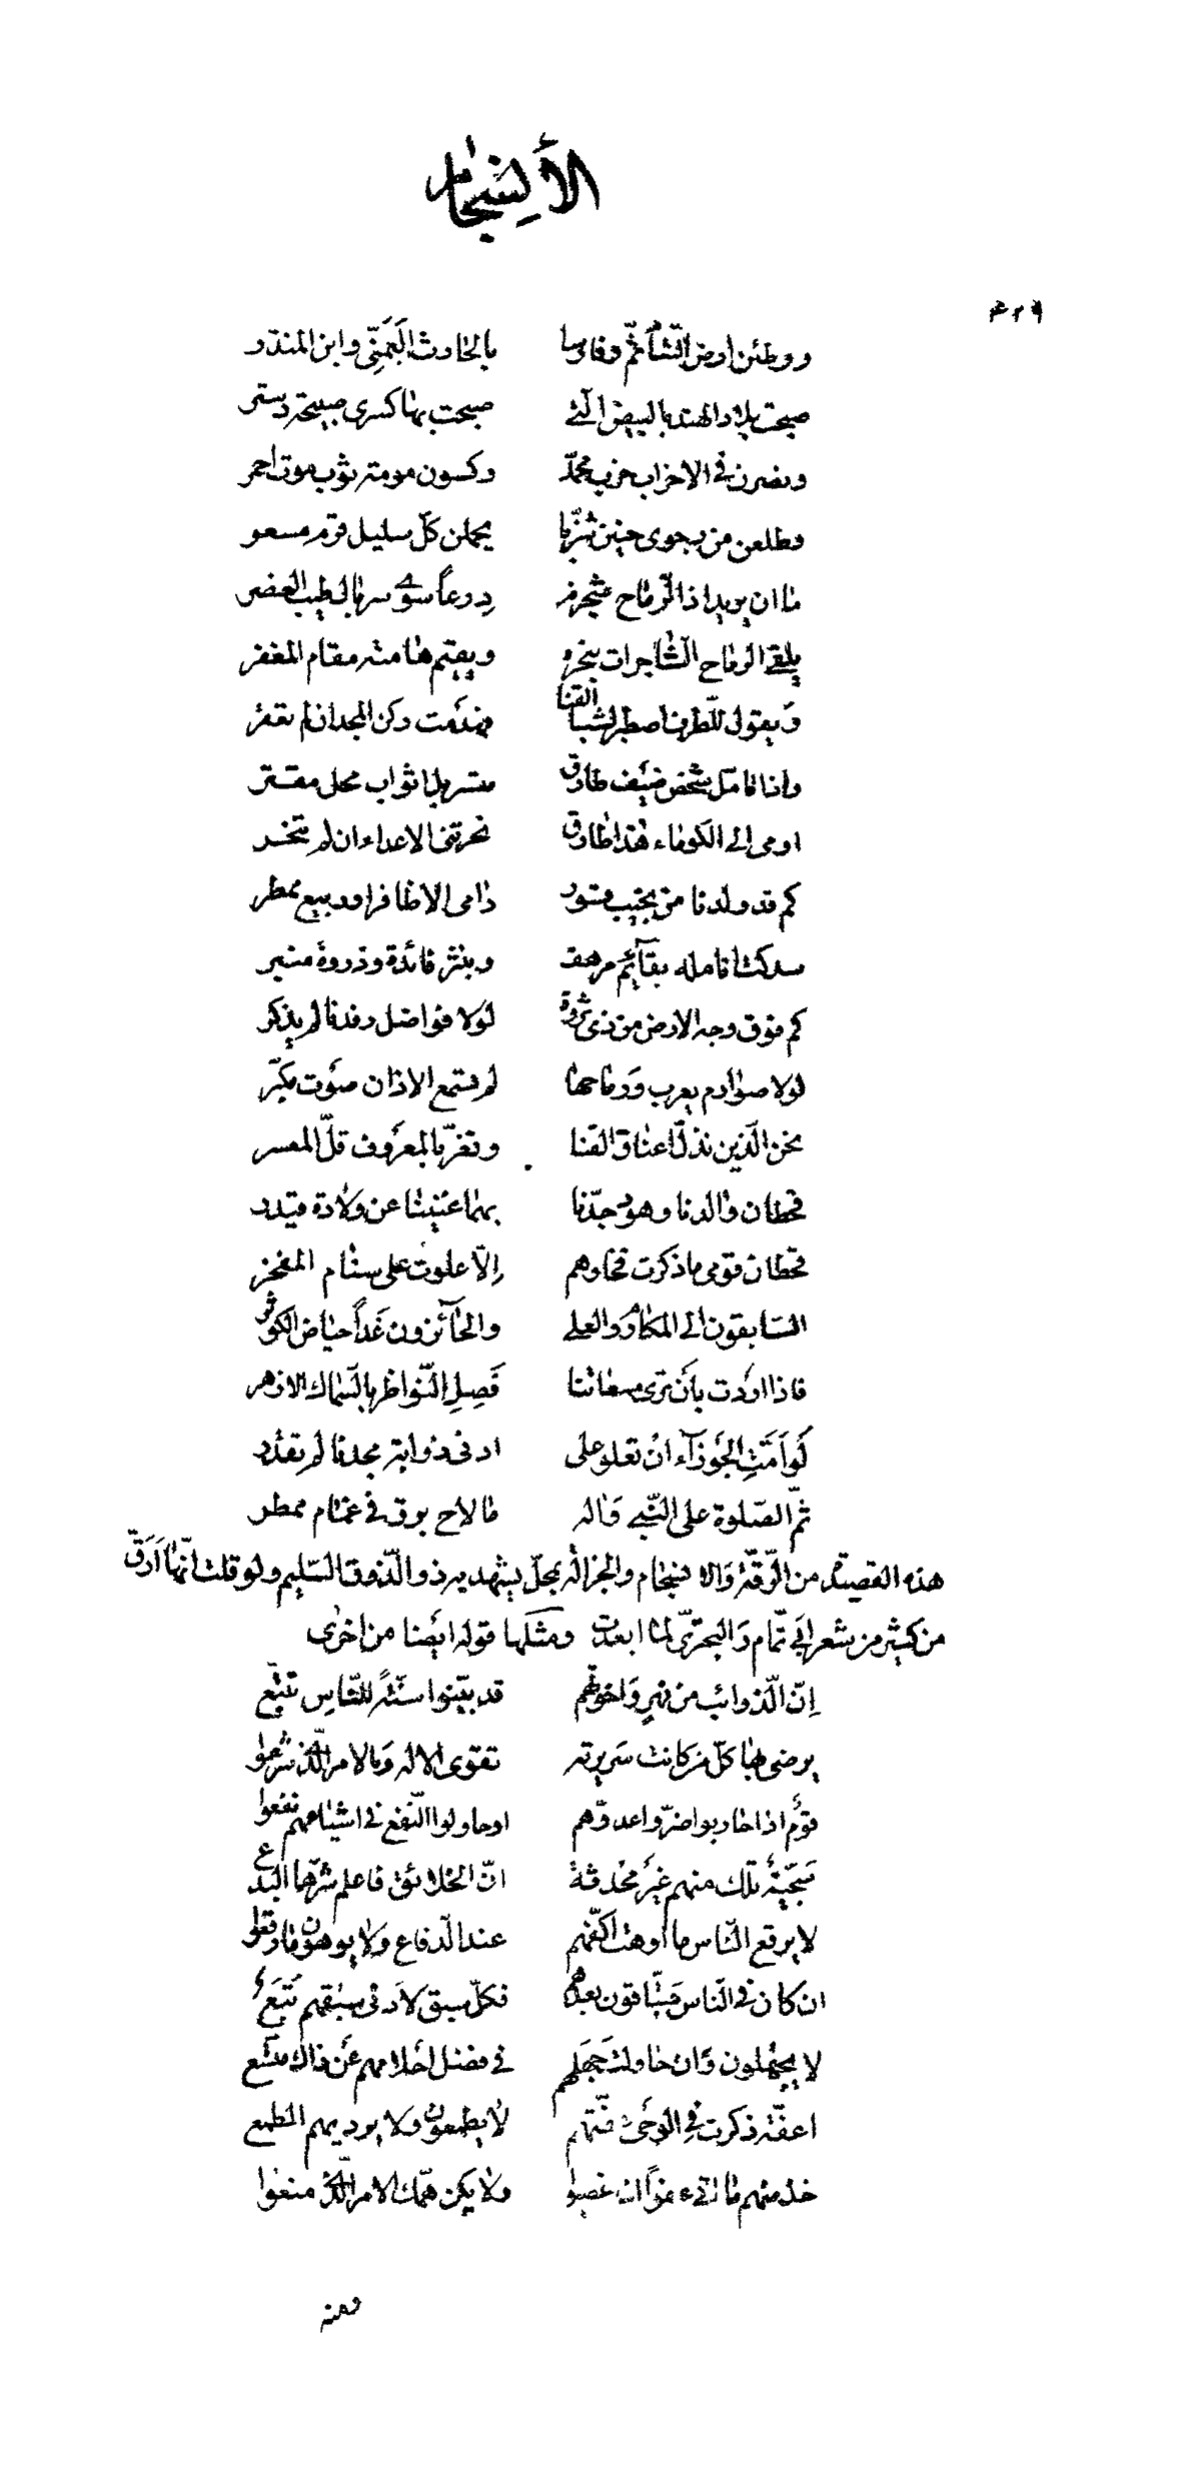 الأنسجام
٤٢٩
ووطئن ارض الشّأم ثمّ وفارسا بالحارث اليَمَنِّى وابن المنذر
صبحت بلاد الهند بالبيض الّتى صبحت بها كسرى صبيحة دستر
ونصرن فى الاحزاب حزب محمّد وكسون مومته ثوب موت احمر
وطلعن من رجوى حنين شزّبا يحملن كلّ سليل قوم مسعر
ما ان يريد اذا الرّماح شجرنه درعاً سوى سربال طيب العنصر
يلقى الرماح الشّاجرات بنحره ويقيم هامته مقام المغفر
وَيقول للّطرف اصطبر لشبا القنا فهدَمت ركن المجد ان لم تعقر
واذا تامّل شخص ضيف طارق متسربل اثواب محل مقتر
اومى الى الكوماء هذا طارق نحرتنى الاعداء ان لم تنحر
كم قد ولدنا من نجيب قسور دامى الاظافر او ربيع ممطر
سدكت انامله بقآئم مرهف وبنثر فائدة وذروة منبر
كم فوق وجه الارض من ذى ثروة لولا فواضل رفدنا لم يذكر
لولا صوارم يعرب وَرماحها لم تسمع الاذان صَوت مكبّر
نحن الّذين نذلّ اعناق القنا ونعزّ بالمعرَوف قلّ المعسر
قحطان والدنا وهود جدّنا بهما غنينا عن ولادة قيدر
قحطان قومى ما ذكرت فخارهم إلّا علوت على سنام المفخر
السّابقون الى المكارم والعلى والحآئزون غَداً حياض الكوثر
فاذا اردت بأن ترى مسعاتنا فَصِلِ النّواظر بالسّماك الازهر
لَو اَمَّتِ الجَوزآء انْ تعلو على ادنى ذوابة مجدنا لم تقدر
ثمّ الصّلوة على النّبى وَاله ما لاح برق فى غمام ممطر
هذه القصيدة من الرّقّة وَالانسجام والجزالة بمحلّ يشهد به ذو الذّوق السّليم ولو قلت انّها اَدَقّ
من كثير من شعر ابى تمّام وَالبحترىّ لما ابعدت ومثلها قوله ايضا من اخرى
إنّ الّذوائب من فهرٍ وَاخوتهم قد بيّنوا سنّةً للنّاسِ تتبّع
يرضى بها كلّ من كانت سَريرته تقوى الاله وَبالامر الّذى شرعوا
قوٌم اذا حاربوا ضرّوا عدوّهم اوحاولوا النّفع فى اشياعهم نفعوا
سَجّيةٌ تلك منهم غيرُ محْدثة انّ الخلائق فاعلم شرّها البدع
لا يرقع النّاس ما اوهت اكفّهم عند الدّفاع وَلا يوهون ما رقعوا
ان كان فى النّاس سَبّاقون بعدهم فكلّ سبق لاَدنى سبقهم تَبَعُ
لا يجهلون وَان حاولت جَهَلهم فى فضل احلامهم عَن ذاك متّسع
اعفّة ذكرت فى الوَحىْ عفّتهم لا يطمعون ولا يرديهم الطّمع
خذ منهم ما اتى عفواً ان غضبوا ولا يكن همّك الامر الّذى منعوا
ومنه